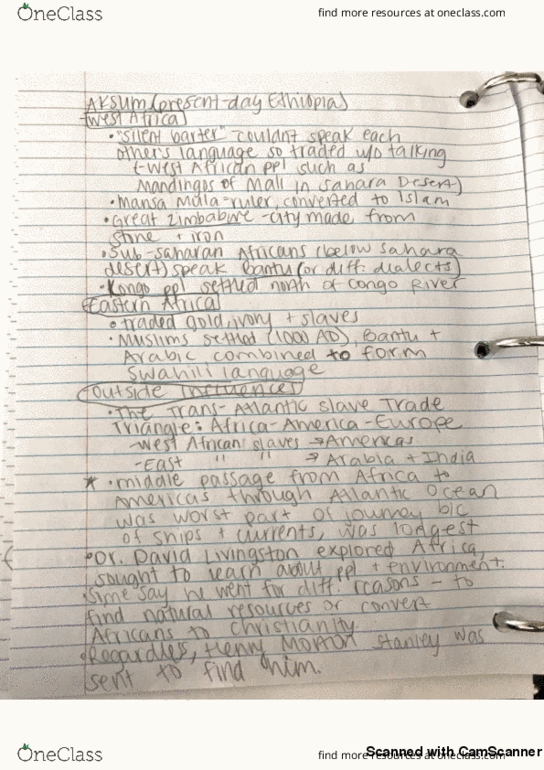 OneClass
find more resources at oneclass.com
AKSUM (present-day Ethiopia)
West Africa
• "silent barter" couldnt speak each
other's language so traded w/o talking
(-West African ppl such as
Mandingos of Mali in Sahara Desert)
• Mansa Mala-ruler, converted to Islam
• Great Zimbabwe -city made from
stone + iron
• Sub-saharan Africans (below sahara
desert) speak Bantu (or diff. dialects)
-Kongo ppl settled north of Congo River
Eastern Africa
• traded gold, ivory + slaves
• Muslims settled (1000 AD), Bantu +
Arabic combined to form
Swahili language
Outside Influences
• The Trans-Atlantic slave Trade
Triangle: Africa-America-Europe
-West African slaves → Americas
-East " " → Arabia + India
★ • middle passage from Africa to
Americas through Atlantic Ocean
was worst part of journey b/c
of ships + currents, was longest
• Dr. David Livingston explored Africa,
sought to learn about ppl + environment.
• Some say he went for diff. reasons - to
find natural resources or convert
Africans to Christianity
• Regardles, Henry Morton Stanley was
sent to find him.
OneClass
find more resources at oneclass.com
Scanned with CamScanner